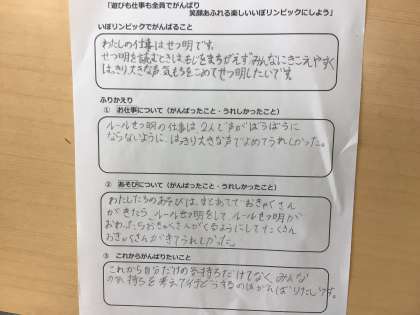 「遊びも仕事も全員でがんばり
笑顔あふれる楽しいいぼリンピックにしよう」
いぼリンピックでがんばること
わたしの仕事はせつ明です。
せつ明を読むときは、もじをまちがえずみんなにきこえやすく
はっきり大きな声気もちをこめてせつ明したいです。
ふりかえり
① お仕事について（がんばったこと・うれしかったこと）
ルールせつ明の仕事は2人で声がばらばらに
ならないように、はっきり大きな声でよめてうれしかった。
② あそびについて（がんばったこと・うれしかったこと）
わたしたちのあそびは、すとあてでおきゃくさん
がきたら、ルールせつ明をして、ルールせつ明が
おわったらおきゃくさんがくるようにしてたくさん
おきゃくさんがきてうれしかった。
③ これからがんばりたいこと
これから自分だけの気持ちだけでなく、みんな
の気持ちを考えて行どうするのはがんばりたいです。